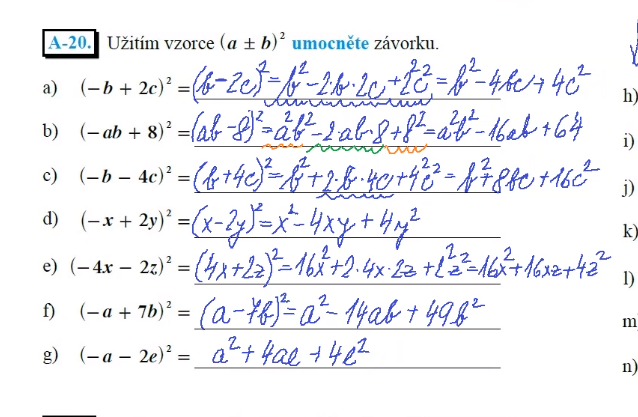 A-20. Užitím vzorce (a ± b)² umocněte závorku.
a) (−b + 2c)² = (b−2c)² = b² − 2·b·2c + 2²c² = b² − 4bc + 4c²
h)
b) (−ab + 8)² = (ab−8)² = a²b² − 2·ab·8 + 8² = a²b² − 16ab + 64
i)
c) (−b − 4c)² = (b+4c)² = b² + 2·b·4c + 4²c² = b² + 8bc + 16c²
j)
d) (−x + 2y)² = (x−2y)² = x² − 4xy + 4y²
k)
e) (−4x − 2z)² = (4x+2z)² = 16x² + 2·4x·2z + 2²z² = 16x² + 16xz + 4z²
l)
f) (−a + 7b)² = (a−7b)² = a² − 14ab + 49b²
m)
g) (−a − 2e)² = a² + 4ae + 4e²
n)